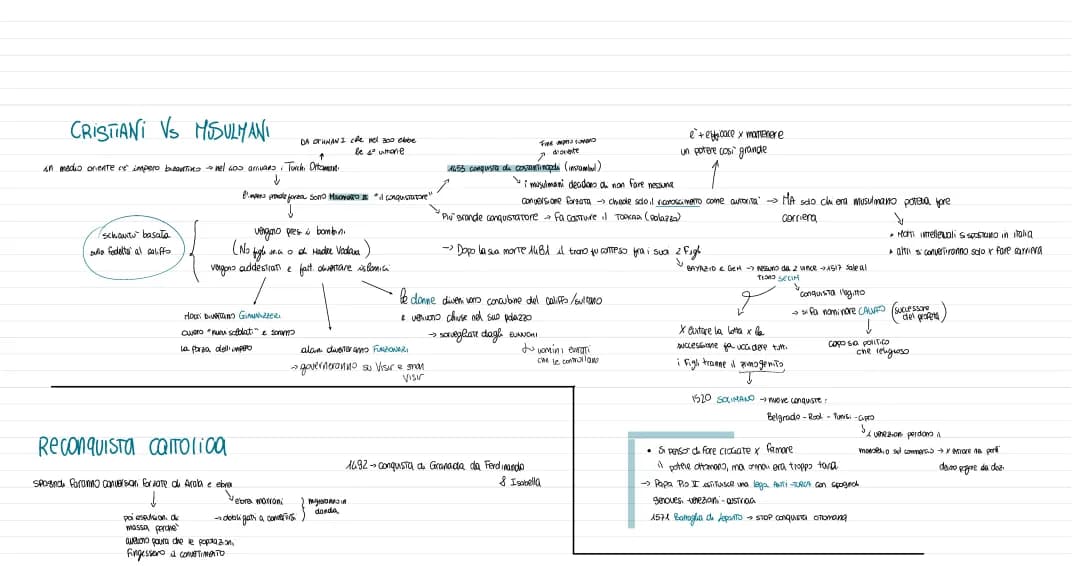 CRISTIANI Vs MUSULMANI
DA OTHMAN I che nel 300 ebbe
le 1e vittorie
in medio oriente c'è impero bizantino → nel 400 arrivano i Turchi Ottomani
l'impero prende forza sotto Maometto II "il conquistatore"
vengono presi i bambini
(No figli unici o di Madre Vedova)
vengono addestrati e fatti diventare islamici
schiavitù basata
sulla fedeltà al califfo
Molti diventano GIANNIZZERI
ovvero "nuovi soldati" e saranno
la forza dell'impero
alcuni diventeranno FUNZIONARI
→ governeranno su Visir e gran
Visir
le donne divenivano concubine del califfo/sultano
e venivano chiuse nel suo palazzo
→ sorvegliate dagli EUNUCHI
↳ uomini evirati
che le controllano
Fine impero romano
d'oriente
1453 conquista di costantinopoli (instambul)
i musulmani decidono di non fare nessuna
conversione forzata → chiede solo il riconoscimento come autorità → MA solo chi era musulmano poteva fare
carriera
è + efficace x mantenere
un potere così grande
• Molti intellettuali si spostano in italia
• altri si convertiranno solo x fare carriera
Più grande conquistatore → Fa costruire il TOPKAPI (palazzo)
→ Dopo la sua morte 1481 il trono fu conteso fra i suoi 2 figli
↳ BAYAZID e GEM → nessuno dei 2 vince → 1517 sale al
trono SELIM
conquista l'egitto
→ si fa nominare CALIFFO (successore
del profeta)
capo sia politico
che religioso
x evitare la lotta x la
successione fa uccidere tutti
i figli tranne il primogenito
1520 SOLIMANO → nuove conquiste:
Belgrado - Rodi - Tunisi - Cipro
↳ i veneziani perdono il
monopolio sul commercio → x entrare nei porti
devono pagare dei dazi
• Si pensò di fare crociate x fermare
il potere ottomano, ma ormai era troppo tardi
→ Papa Pio II istituisce una lega ANTI-TURCA con spagnoli
genovesi - veneziani - austriaci
1571 Battaglia di Lepanto → STOP conquista ottomana
RECONQUISTA CATTOLICA
1492 → conquista di Granada da Ferdinando
& Isabella
spagnoli faranno conversioni forzate di Arabi e ebrei
↳ ebrei marrani
→ obbligati a convertirsi
migreranno in
olanda
poi espulsioni di
massa perché
avevano paura che le popolazioni
fingessero il convertimento